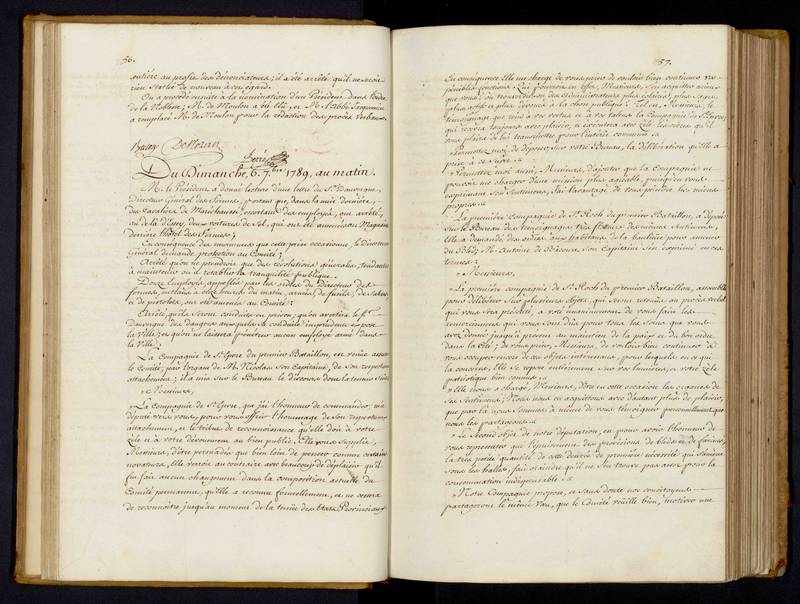 56.
entière au profit des dénonciateurs; il a été arrêté qu'il ne seroit
rien statué de nouveau à cet égard.
On a procédé ensuite à la nomination d'un Président dans l'ordre
de la Noblesse; M. de Moulon a été élu, et M.
a remplacé M. de Moulon pour la rédaction des procès Verbaux.
Du Dimanche, 6. 7.bre 1789, au matin.
M. le Président a donné lecture d'une lettre du Sr.
Directeur Général des Fermes, portant que, dans la nuit dernière,
des Cavaliers de Maréchaussée, escortant des employés, ont arrêté,
deux voitures de Sel, qui ont été amenées au Magasin
derrière l'hôtel des Fermes;
En conséquence des murmures que cette prise occasionne, le directeur
Général demande protection au Comité;
Arrêté qu'on ne prendroit que des résolutions générales, tendantes
à maintenir ou à rétablir la tranquilité publique.
Douze Employés, appellés par les ordres du Directeur des
fermes, entrés à onze heures du matin, armés de fusils, de Sabres
et de pistolets, ont été amenés au Comité;
Arrêté qu'ils seront conduits en prison, qu'on avertira le Sr.
des dangers auxquels sa conduite imprudente expose
la Ville; et qu'on ne laissera pénétrer aucun employé armé dans
la Ville.
La Compagnie de St. Epvre du premier Bataillon, est venue assurer
le Comité, par l'organe de M. Nicolas son Capitaine, de son respectueux
attachement; il a mis sur le Bureau le discours dont la teneur suit:
» Messieurs,
» La Compagnie de St. Epvre, que j'ai l'honneur de commander, m'a
député vers vous, pour vous offrir l'hommage de son respectueux
attachement, et le tribut de reconnoissance qu'elle doit à votre
zèle et à votre dévouement au bien public. Elle vous supplie,
Messieurs, d'être persuadés que bien loin de penser comme certains
novateurs, Elle verroit au contraire avec beaucoup de déplaisir qu'il
fut fait aucun changement dans la composition actuelle du
Comité permanent, qu'Elle a reconnu formellement, et ne cessera
de reconnoître jusqu'au moment de la tenue des États Provinciaux
57.
En conséquence Elle me charge de vous prier de vouloir bien continuer vos
pénibles fonctions. Qui pourroit en effet, Messieurs, s'en acquitter mieux
que vous? où trouveroit-on des Administrateurs plus éclairés, plus sages,
plus actifs et plus dévoués à la chose publique? Tel est, Messieurs, le
témoignage que rend à vos vertus et à vos talens la Compagnie de St. Epvre,
qui recevra toujours avec plaisir, et exécutera avec zèle les ordres qu'il
vous plaira de lui transmettre pour l'utilité commune.
» Permettez moi de déposer sur votre Bureau, la délibération qu'Elle a
prise à ce sujet.
» Permettez moi aussi, Messieurs, d'ajouter que la Compagnie ne
pouvoit me charger d'une mission plus agréable, puisqu'en vous
exprimant ses sentimens, j'ai l'avantage de vous peindre les miens
propres. »
La première Compagnie de St. Roch du premier Bataillon, a déposé
sur le Bureau des témoignages très flatteurs des mêmes sentimens;
Elle a demandé des ordres aux habitans de la banlieue pour amener
du Bled; M. Antoine de Bécourt, son Capitaine s'est exprimé en ces
termes:
» Messieurs,
» La première compagnie de St. Roch du premier Bataillon, assemblée
pour délibérer sur plusieurs objets, qui seront relatés au procès verbal
qui vous sera présenté, a voté unanimement de vous faire les
remercimens qui vous sont dus pour tous les soins que vous
avez donné jusqu'à présent au maintien de la paix et du bon ordre
dans la Cité; de vous prier, Messieurs, de vouloir bien continuer à
vous occuper encore de ces objets intéressans, pour lesquels en ce qui
la concerne, Elle se repose entièrement sur vos lumières, et votre zèle
patriotique bien connus.
» Elle nous a chargé, Messieurs, d'être en cette occasion les organes de
ses sentimens; Nous nous en acquittons avec d'autant plus de plaisir,
que par là nous sommes à même de vous témoigner personnellement que
nous les partageons.
» Le second objet de notre députation, est pour avoir l'honneur de
vous représenter que l'épuisement des provisions de bleds et de farine,
la très petite quantité de cette denrée de première nécessité qui s'amène
sous les halles, fait craindre qu'il ne s'en trouve pas assez pour la
consommation indispensable.
» Notre Compagnie propose, et sans doute nos concitoyens
partageront le même vœu, que le Comité veuille bien, motiver une